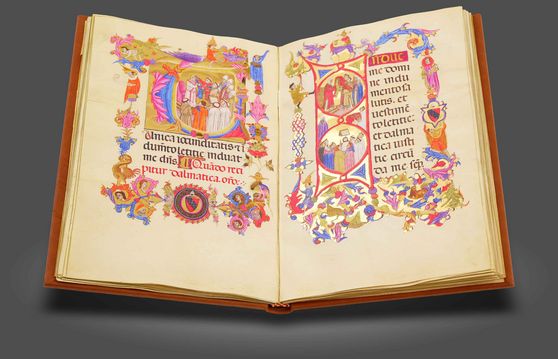 unica iocunditatis τ i
dumto letitie induat
me dñs. Quado reci
pitur dalmatica. oro.
me domi
ne indu
mento sa
lutis. et
uestimē
to letitie:
et dalma
tica iusti
tie circū
da me sēp.